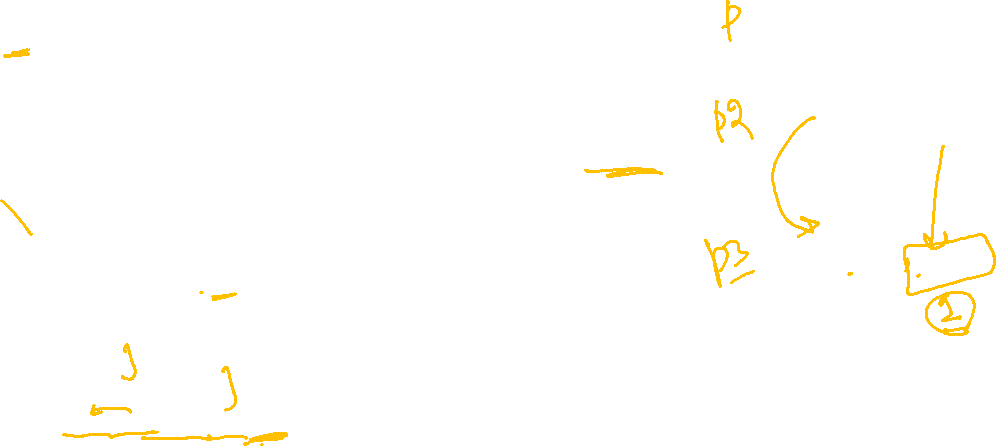 p
p2
p3
1